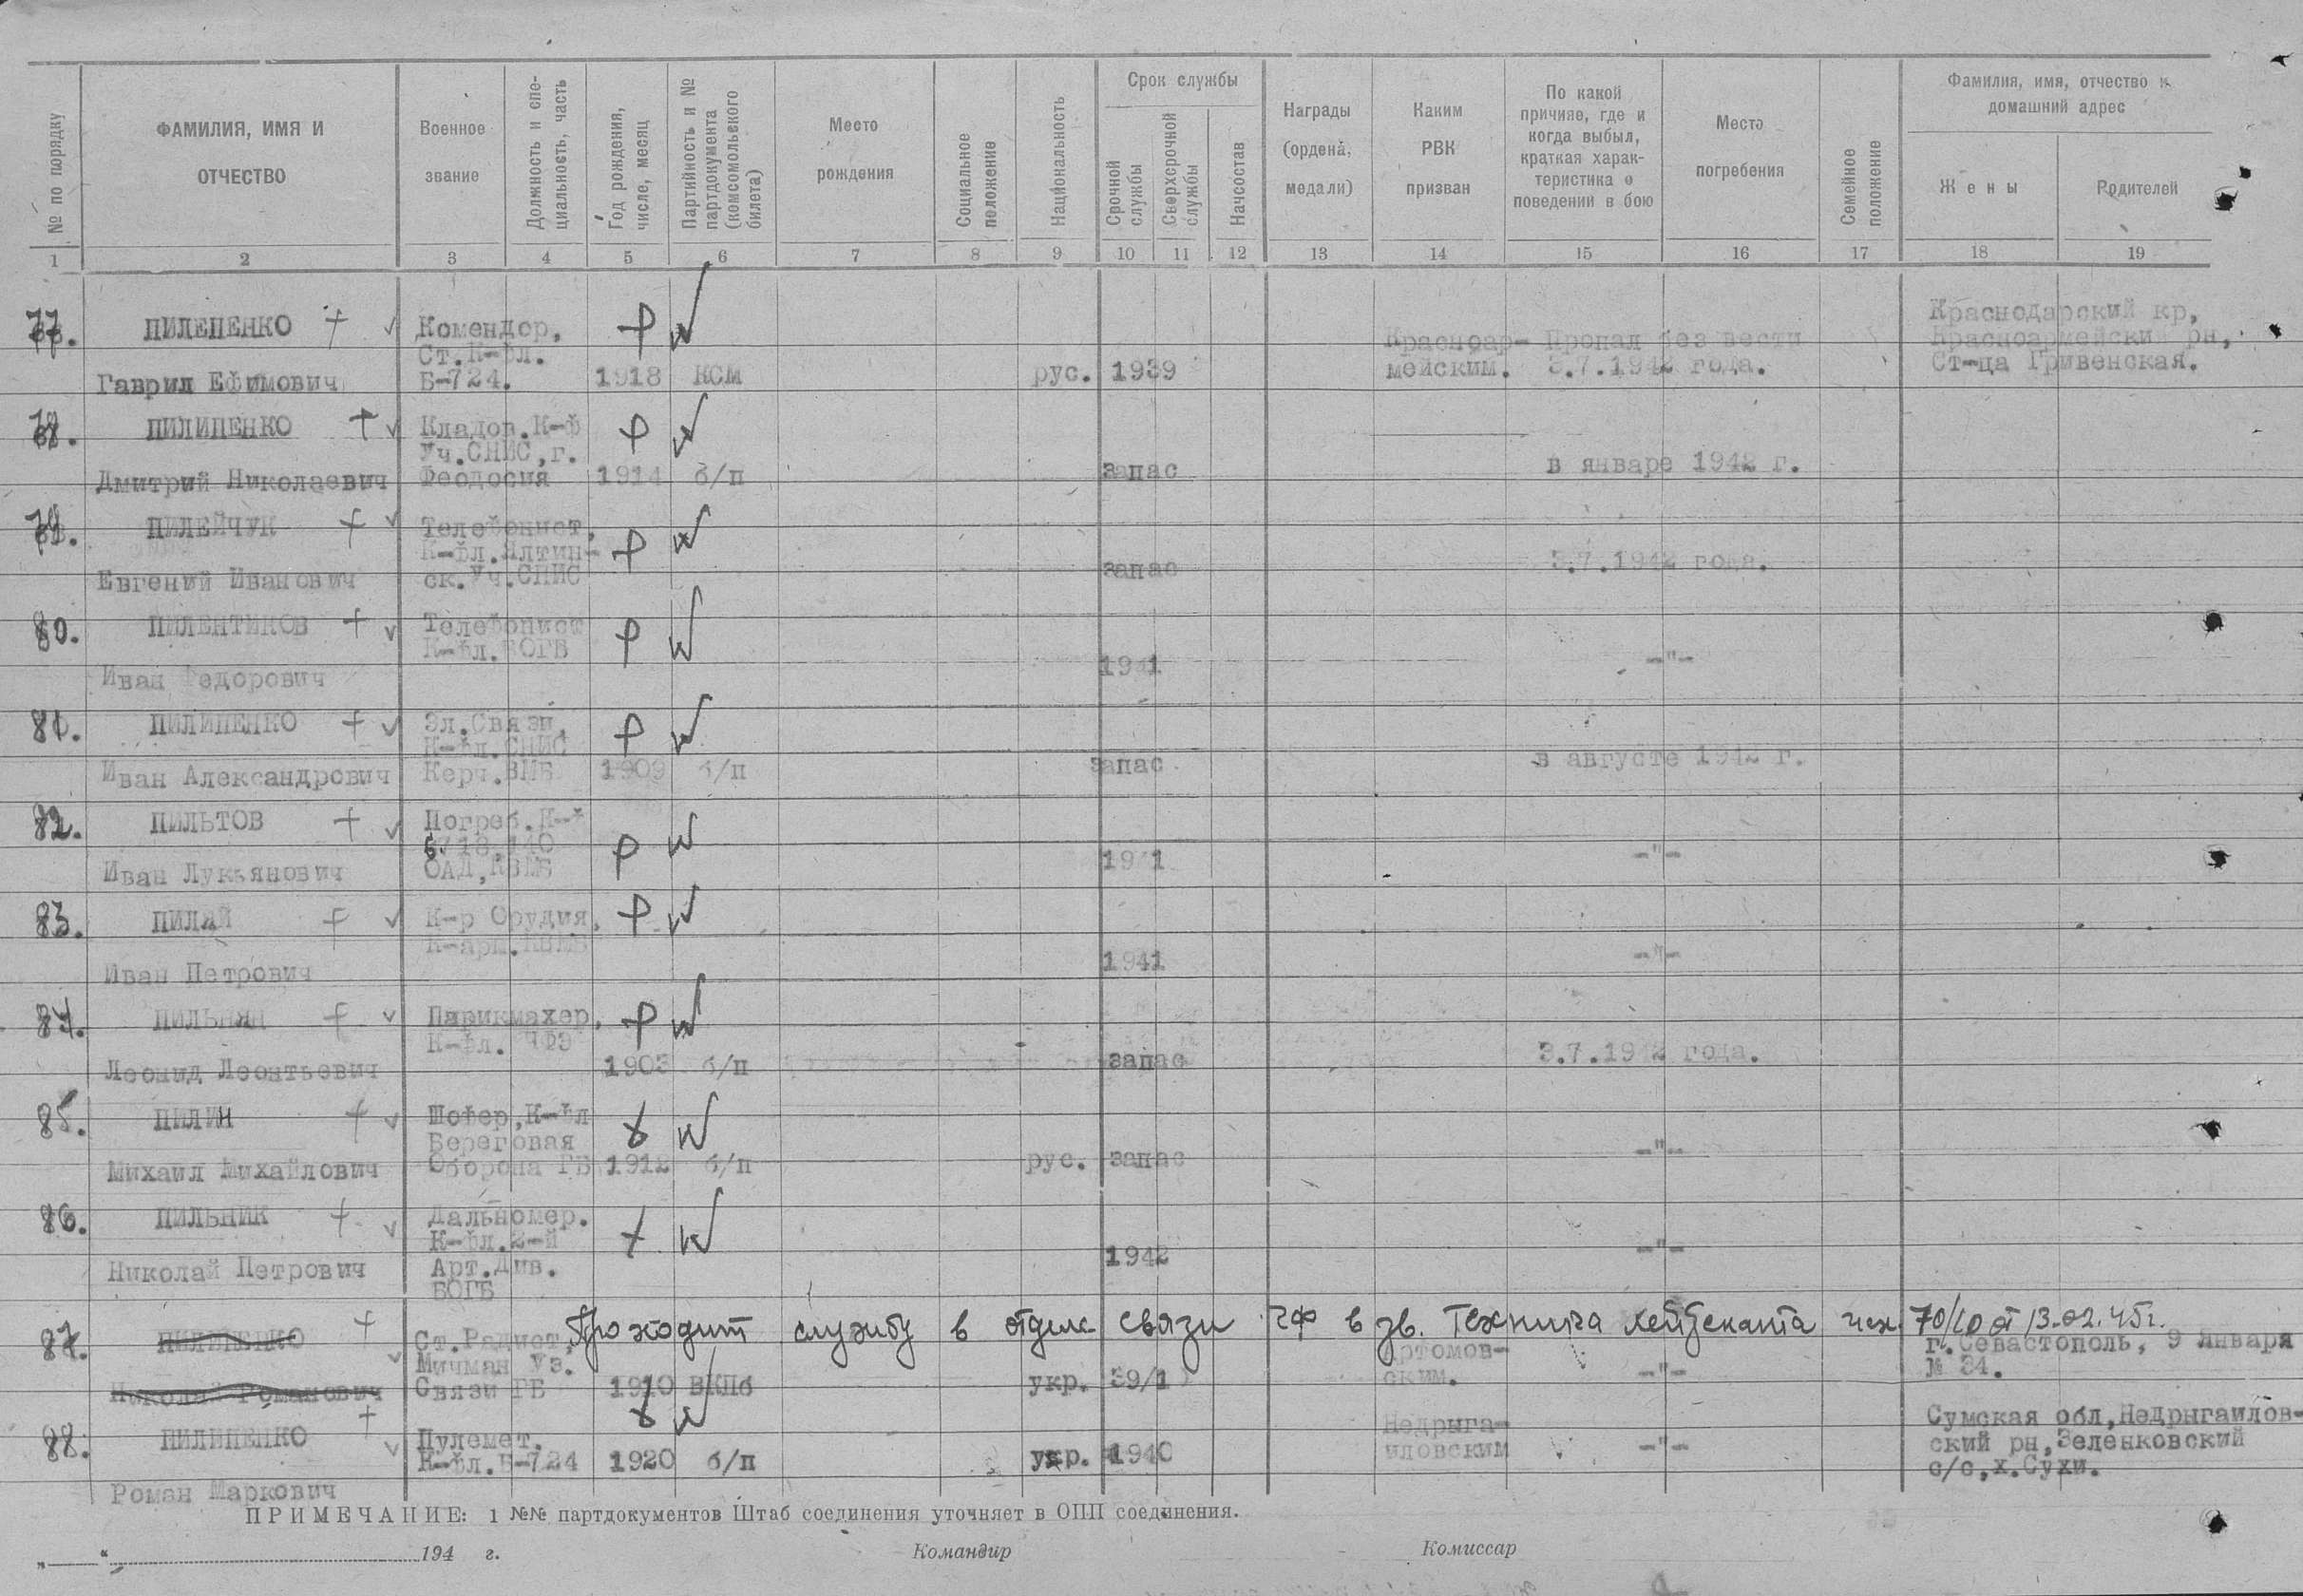 № по порядку
ФАМИЛИЯ, ИМЯ И
ОТЧЕСТВО
Военное
звание
Должность и спе-
циальность, часть
Год рождения,
число, месяц
Партийность и №
партдокумента
(комсомольского
билета)
Место
рождения
Социальное
положение
Национальность
Срок службы
Срочной
службы
Сверхсрочной
службы
Начсостав
Награды
(ордена,
медали)
Каким
РВК
призван
По какой
причине, где и
когда выбыл,
краткая харак-
теристика о
поведении в бою
Место
погребения
Семейное
положение
Фамилия, имя, отчество и
домашний адрес
Жены
Родителей
1 2 3 4 5 6 7 8 9 10 11 12 13 14 15 16 17 18 19
77. ПИЛЕПЕНКО
Гаврил Ефимович
Комендор,
Ст.К-фл.
Б-724. 1918 КСМ рус. 1939
Красноар-
мейским.
Пропал без вести
3.7.1942 года.
Краснодарский кр,
Красноармейски рн,
Ст-ца Гривенская.
78. ПИЛИПЕНКО
Дмитрий Николаевич
Кладов.К-ф
Уч.СНИС,г.
Феодосия 1914 б/п запас в январе 1942 г.
79. ПИЛЕЙЧУК
Евгений Иванович
Телефонист,
К-фл.Ялтин-
ск.Уч.СНИС запас 3.7.1942 года.
80. ПИЛЕНТИКОВ
Иван Федорович
Телефонист
К-фл.БОГБ 1941 -"-
81. ПИЛИПЕНКО
Иван Александрович
Эл.Связи,
К-фл.СНИС
Керч.ВМБ 1909 б/п запас в августе 1942 г.
82. ПИЛЬТОВ
Иван Лукьянович
Погреб.К-ф
140
ОАД,КВМБ 1941 -"-
83. ПИЛАЙ
Иван Петрович
К-р Орудия,
К-арм.КВМБ 1941 -"-
84. ПИЛЬНЯН
Леонид Леонтьевич
Парикмахер,
К-фл. ЧФЭ
1903 б/п запас 3.7.1942 года.
85. ПИЛИН
Михаил Михайлович
Шофер,К-фл
Береговая
Оборона ГБ 1912 б/п рус. запас -"-
86. ПИЛЬНИК
Николай Петрович
Дальномер.
К-фл.2-й
Арт.Див.
БОГБ 1942 -"-
87. ПИЛИПЕНКО
Николай Романович
Проходит службу в отделе связи ЧФ в зв. Техника лейтенанта исх. 70/10 от 13.02.45г.
Ст.Радист,
Мичман Уз.
Связи ГБ 1910 ВКПб укр. 39/1
Артомов-
ским. -"-
г.Севастополь, 9 Января
№ 34.
88. ПИЛИПЕНКО
Роман Маркович
Пулемет.
К-фл.Б-724 1920 б/п укр. 1940
Недрыга-
йловским -"-
Сумская обл,Недрыгайлов-
ский рн,Зеленковский
с/с,х.Сухи.
ПРИМЕЧАНИЕ: 1 №№ партдокументов Штаб соединения уточняет в ОПП соединения.
„ “ 194 г. Командир Комиссар